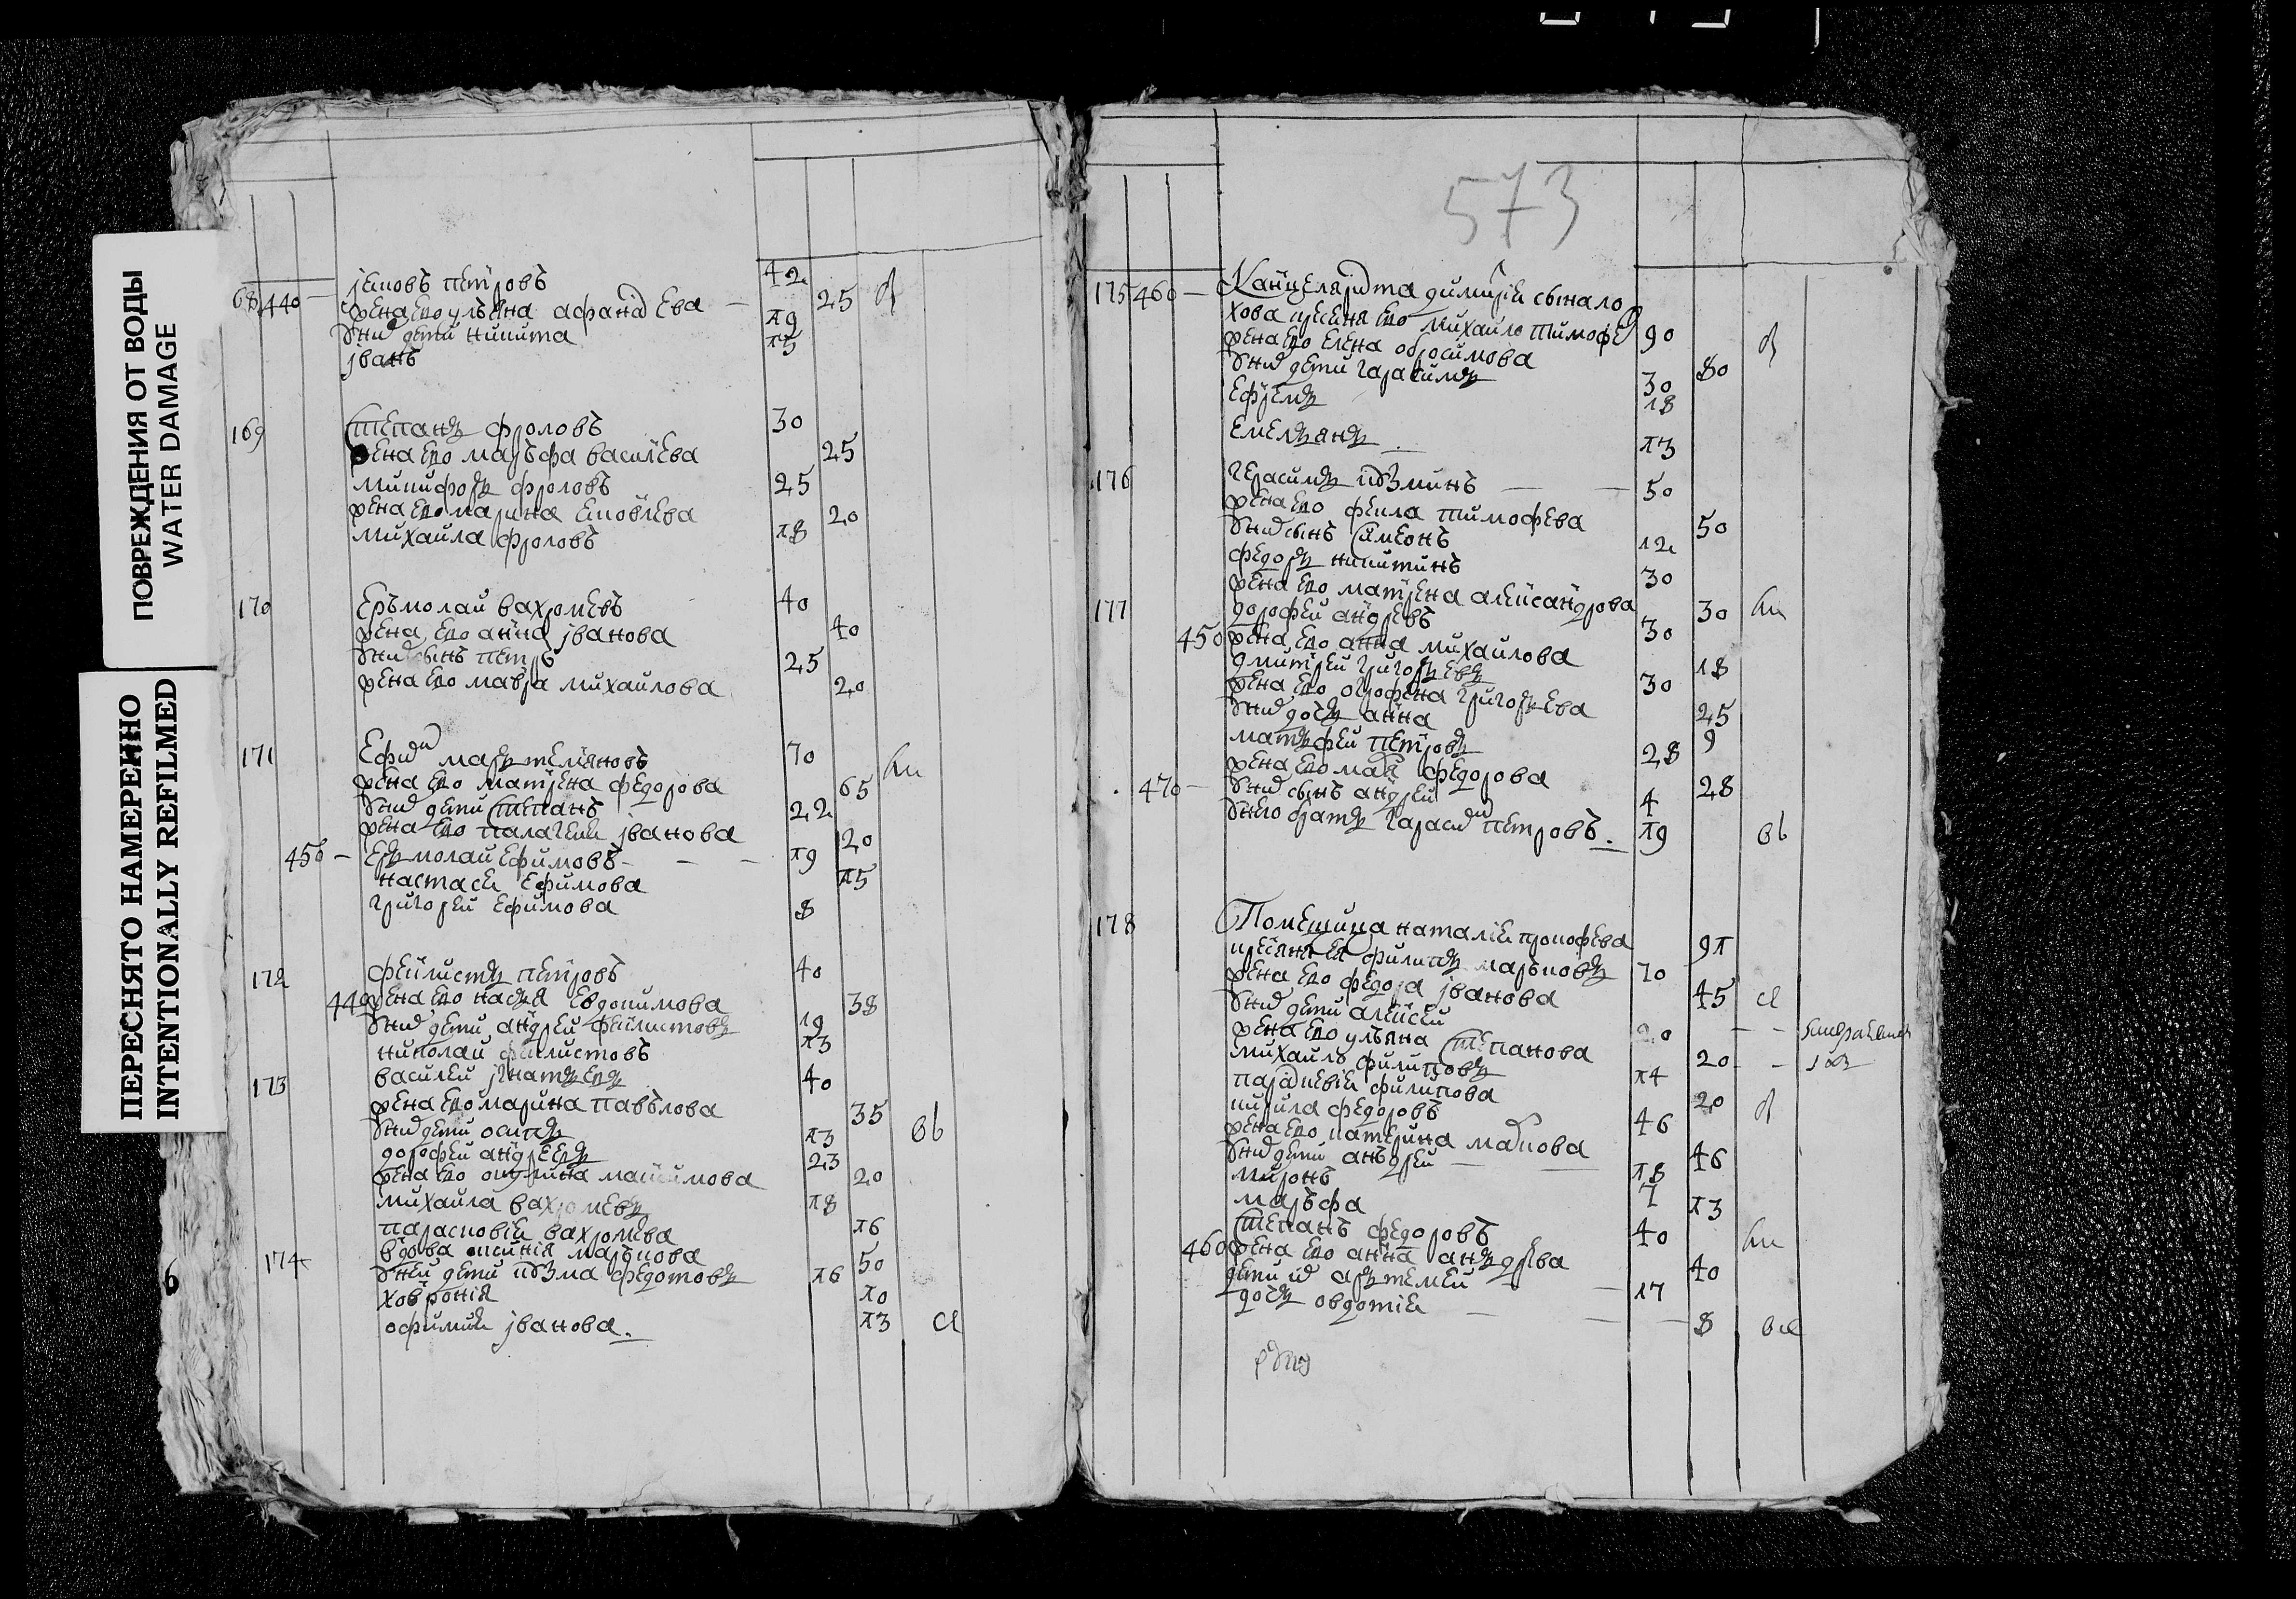 ПОВРЕЖДЕНИЯ ОТ ВОДЫ
WATER DAMAGE
ПЕРЕСНЯТО НАМЕРЕННО
INTENTIONALLY REFILMED
6
68 440 — яковъ петровъ 42
жена ево ульяна афанасева — 25
у них дети никита 19
іванъ 15
169 степанъ фроловъ 30
жена ево маръфа василева 25
никифоръ фроловъ 25
жена ево марина яковлева 20
михаила фроловъ 18
170 Еръмолаи вахромевъ 40
жена ево анна іванова 40
у них сынъ петръ 25
жена ево мавра михаилова 20
171 Ефим марътемяновъ 70
жена ево матрена федорова 65
у них дети степанъ 22
жена ево палагеия іванова 20
450 — Ермолаи Ефимовъ — 19
настася Ефимова 15
григореи Ефимова 8
172 феклистъ петровъ 40
440 жена ево настя Евдокимова 38
у них дети андреи феклистовъ 19
николаи феклистовъ 13
173 василеи ігнатьевъ 40
жена ево марина павълова 35
у них дети осипъ 13
дорофеи андреевъ 23
жена ево акулина максимова 20
михаила вахромевъ 18
парасковия вахромева 16
174 вдова аксиния маръкова 50
у неи дети козма федотовъ 16
ховрония 10
офимия іванова. 13
573
175 460 — Канцеляриста димитрия сына ло
хова крестьяня ево михаило тимофе 90
жена ево елена обросимова 80
у них дети гарасимъ 30
Ефремъ 18
Емельянъ 13
176 герасимъ козминъ — 50
жена ево фекла тимофева 50
у них сынъ симеонъ 12
федоръ никитинъ 30
жена ево матрена александрова 30
177 дорофеи андревъ 30
450 жена ево анна михаилова 18
дмитреи григорьевъ 30
жена ево огрофена григорьева 25
у них дочь анна 9
матьфеи петровъ 28
жена ево маря федорова 28
470 — у них сынъ андреи 4
у него братъ гарасим петровъ. 19
178 Помещица наталия прокофева 91
крестьяня ея филипъ маръковъ 70
жена ево федора іванова 45
у них дети алексеи 20
жена ево ульяна степанова 20
михаило филиповъ 14
парасковия филипова 20
кирила федоровъ 46
жена ево катерина макова 46
у них дети анъдреи — 18
миронъ 7
маръфа 13
степанъ федоровъ 40
460 жена ево анна андрева 40
дети их артемеи — 17
дочь овдотия — 8